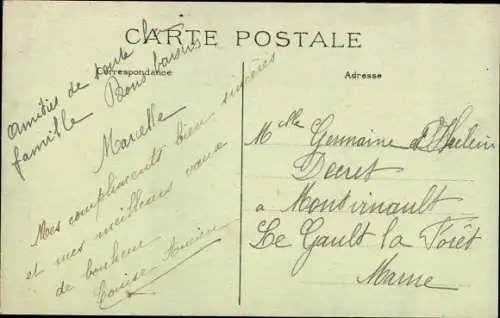 CARTE POSTALE
Correspondance
Adresse
Amitiés de toute la
famille Bons baisers
Marcelle
Mes compliments bien sincères
et mes meilleurs vœux
de bonheur
Louise
Mlle Germaine
à Montvinault
Le Gault la Forêt
Marne